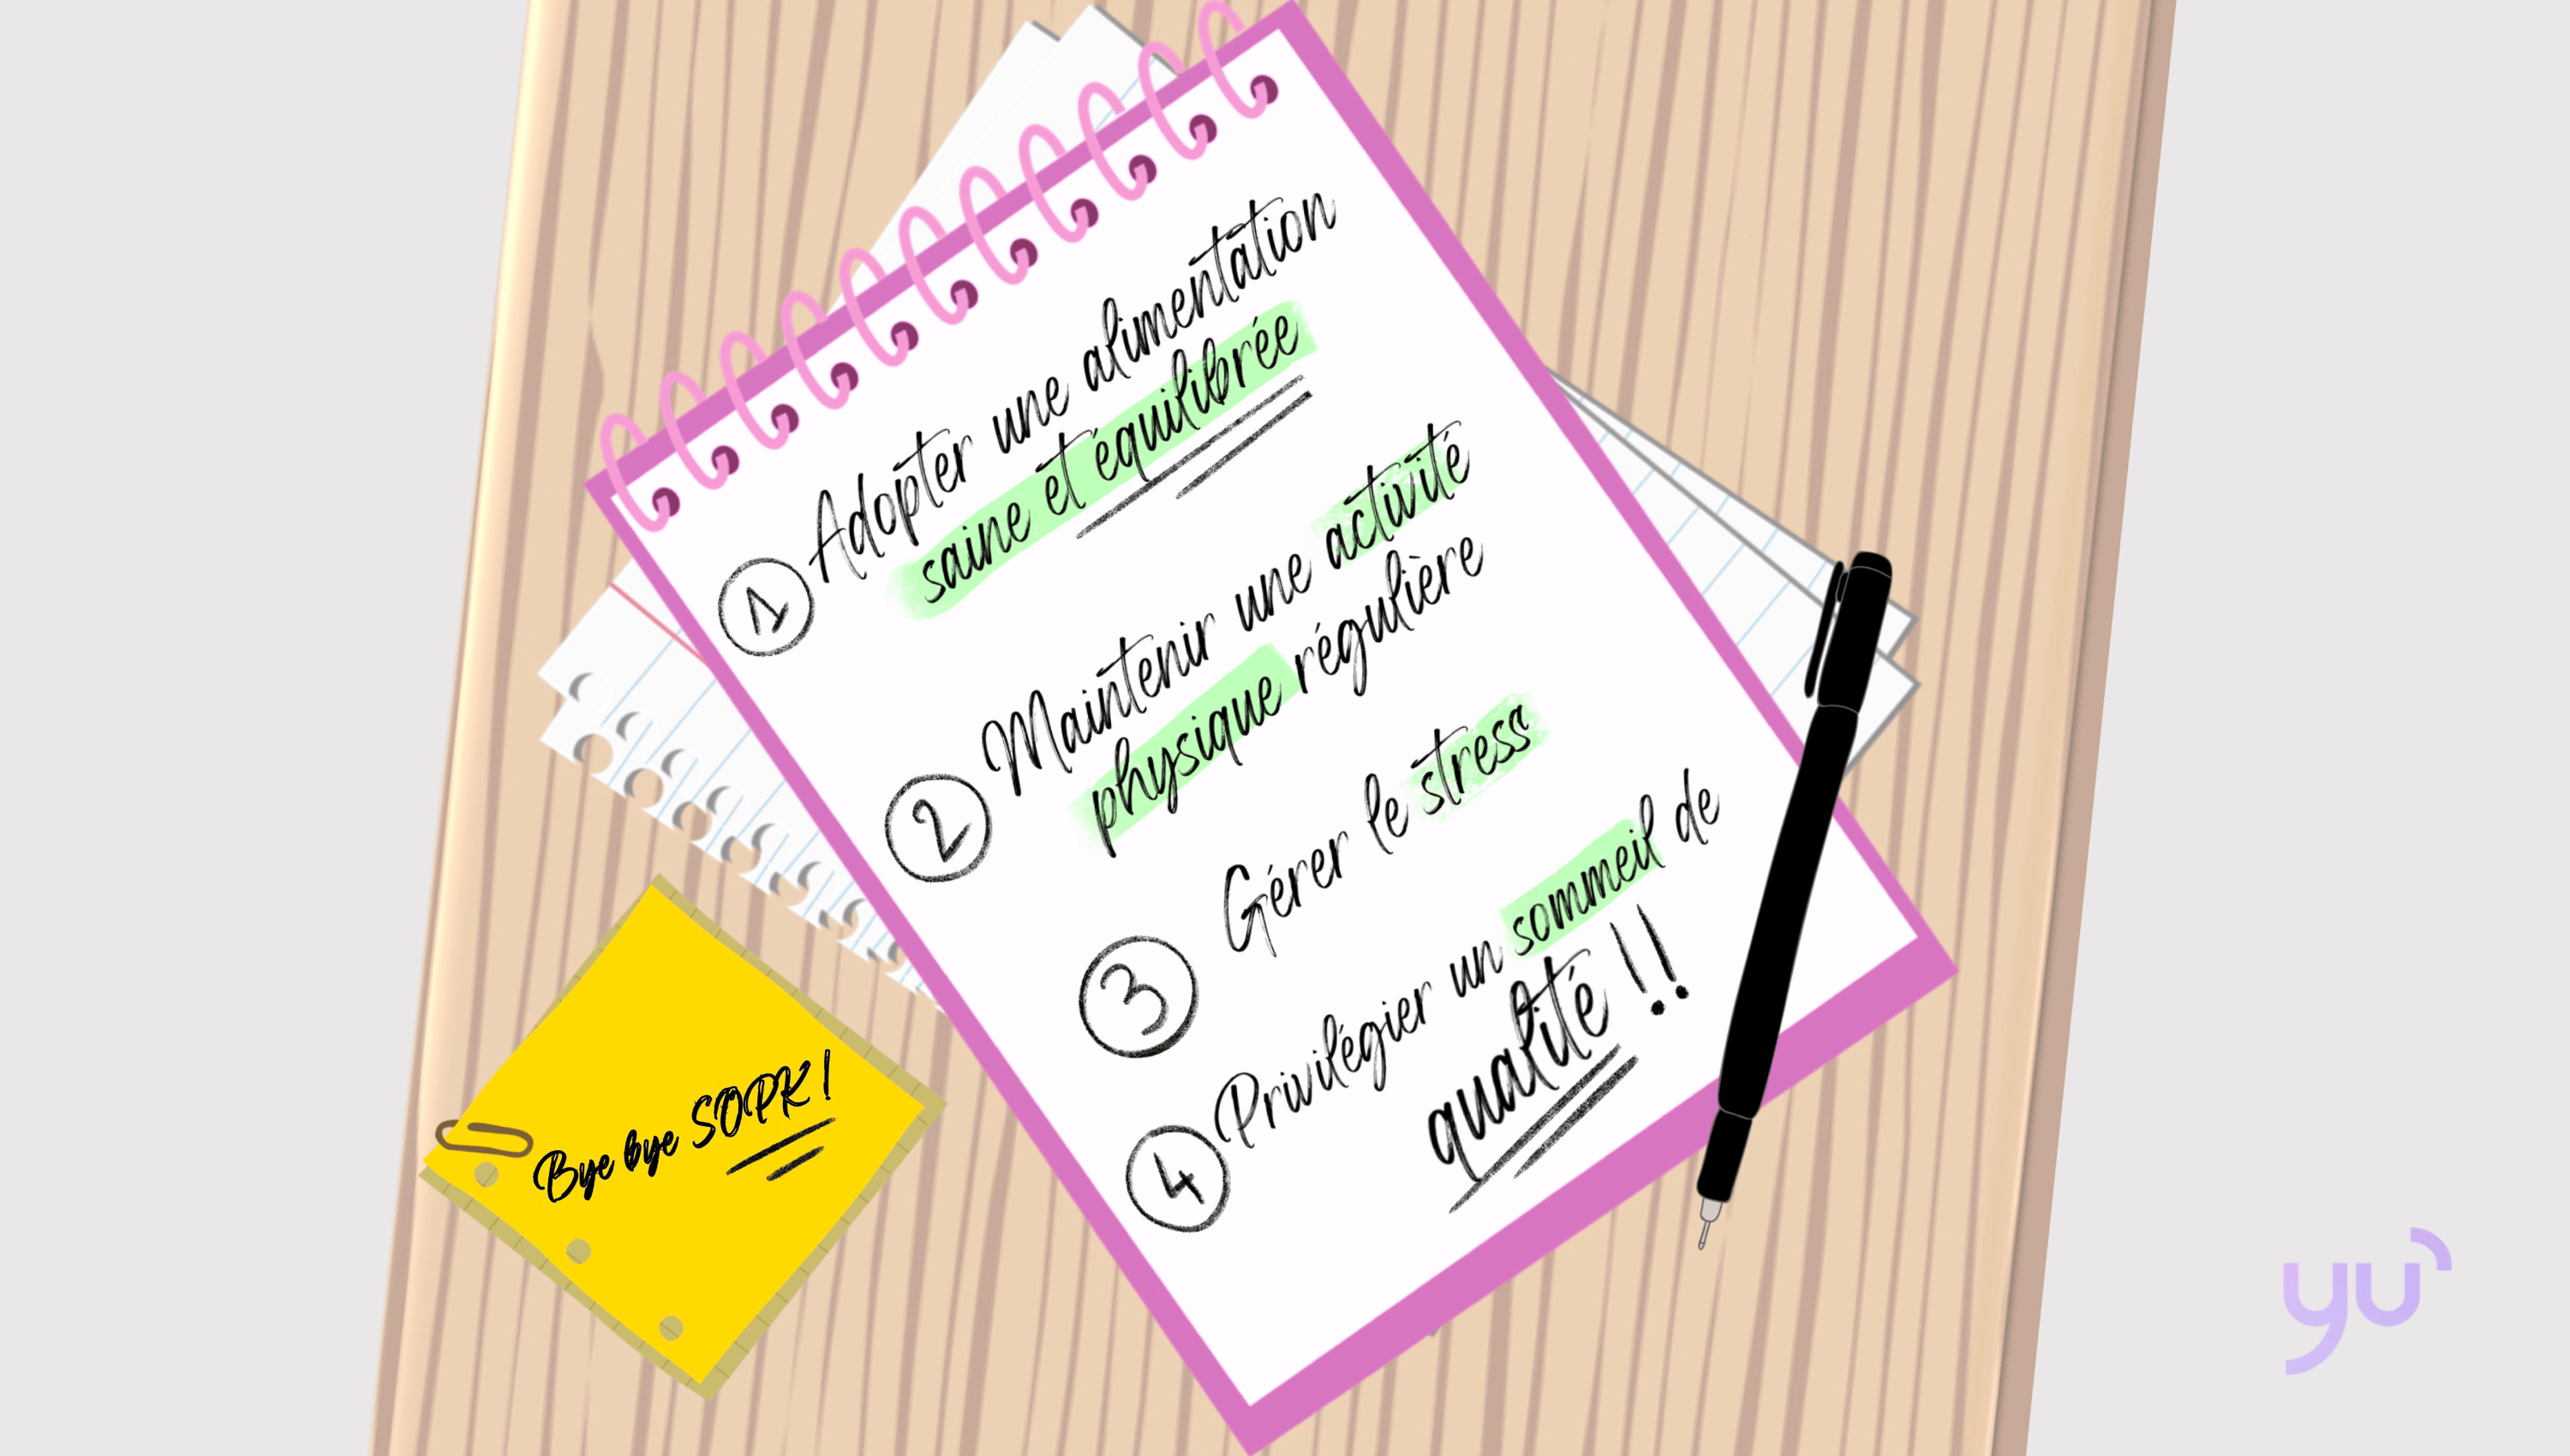 1 Adopter une alimentation
saine et équilibrée
2 Maintenir une activité
physique régulière
3 Gérer le stress
4 Privilégier un sommeil de
qualité !!
Bye bye SOPK !
yu